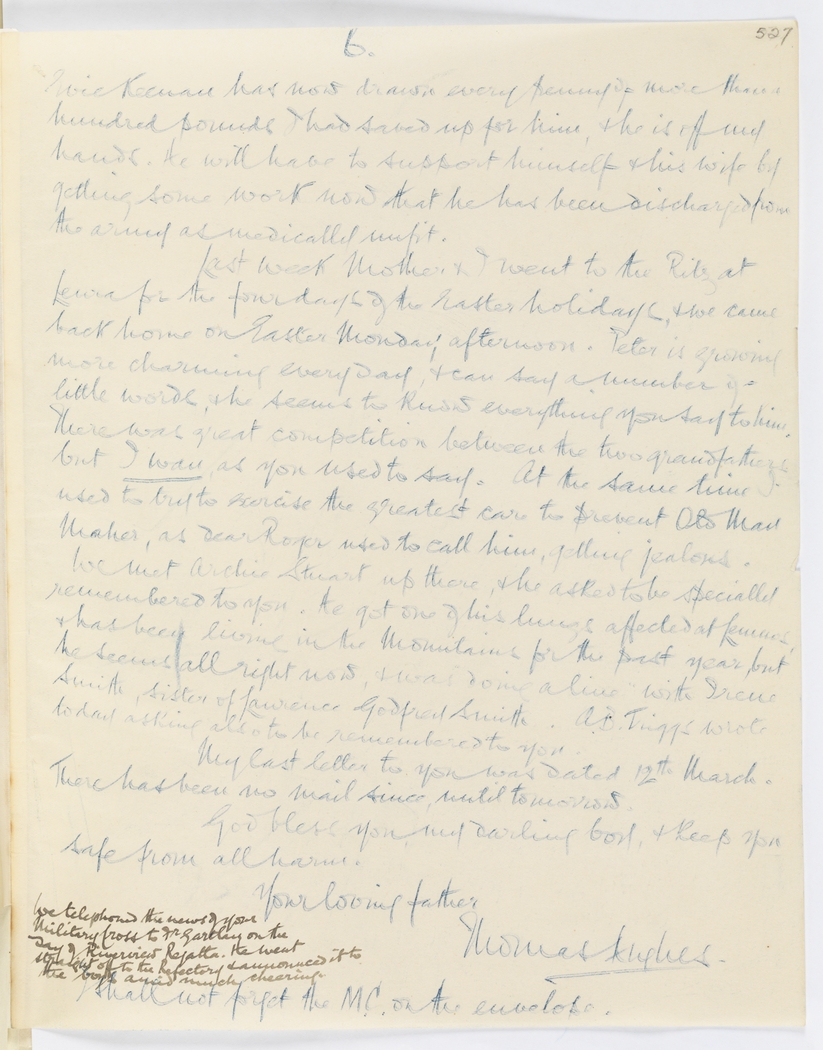 6.
527
Keenan has now drawn every penny of more than a
hundred pounds I had saved up for him, & he is off my
hands. He will have to support himself & his wife by
getting some work now that he has been discharged from
the army as medically unfit.
Last week Mother & I went to the Ritz at
Leura for the four days of the Easter holidays, & we came
back home on Easter Monday afternoon. Peter is growing
more charming every day, & can say a number of
little words, & he seems to know everything you say to him.
There was great competition between the two grandfathers
but I wan, as you used to say. At the same time I
used to try to exercise the greatest care to prevent Old Man
Maher, as dear Roger used to call him, getting jealous.
We met Archie Stuart up there, & he asked to be specially
remembered to you. He got one of his lungs affected at
& has been living in the Mountains for the past year, but
he seems all right now, & was "doing a line" with Irene
Smith, sister of Lawrence Godfrey Smith. A.B. Triggs wrote
today asking also to be remembered to you.
My last letter to you was dated 12th March.
There has been no mail since, until tomorrow.
God bless you, my darling boy, & keep you
safe from all harm.
Your loving father
Thomas Hughes.
We telephoned the news of your
Military Cross to Fr Gartlan on the
Day of Riverview Regatta. He went
straight off to the Refectory & announced it to
the boys amid much cheering.
I shall not forget the M.C. on the envelope.